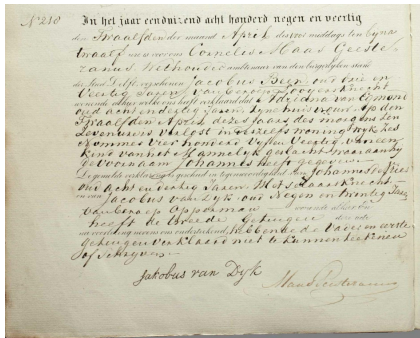 No 210 In het jaar eendnizend acht honderd negen en veertig
den Twaalfden der maand April des voormiddags ten
twaalf ure voor ons Cornelis Maas Geeste-
ranus Wethouder ambtenaar van den burgerlijken stand
der Stad Delft, verschenen Jacobus Been oud drie en
Veertig Jaren van beroep
wonende alhier welke ons heeft verklaard dat Adriana van
oud acht en dertig Jaren Zijne huisvrouw op den
Twaalfden April dezes Jaars des morgens ten
Een ure is verlost in derzelfs woning Wijk zes
Nommer vier honderd Vijf en Veertig van een
Kind van het Mannelijk geslacht waaraan hij
de voornaam Johannes heeft gegeven
De gemelde verklaring is geschied in tegenwoordigheid van Johannes de Vries
oud acht en dertig Jaren Metselaarsknecht
en van Jacobus van Dyk oud Negen en twintig Jaren
van beroep Opperman wonende alhier
heeft de tweede Getuigen deze acte
na voorlezing nevens ons onderteekend, hebbende de Vader en eerste
getuigen verklaard niet te kunnen teekenen
of schrijven
Jakobus van Dyk
Maas Geesteranus